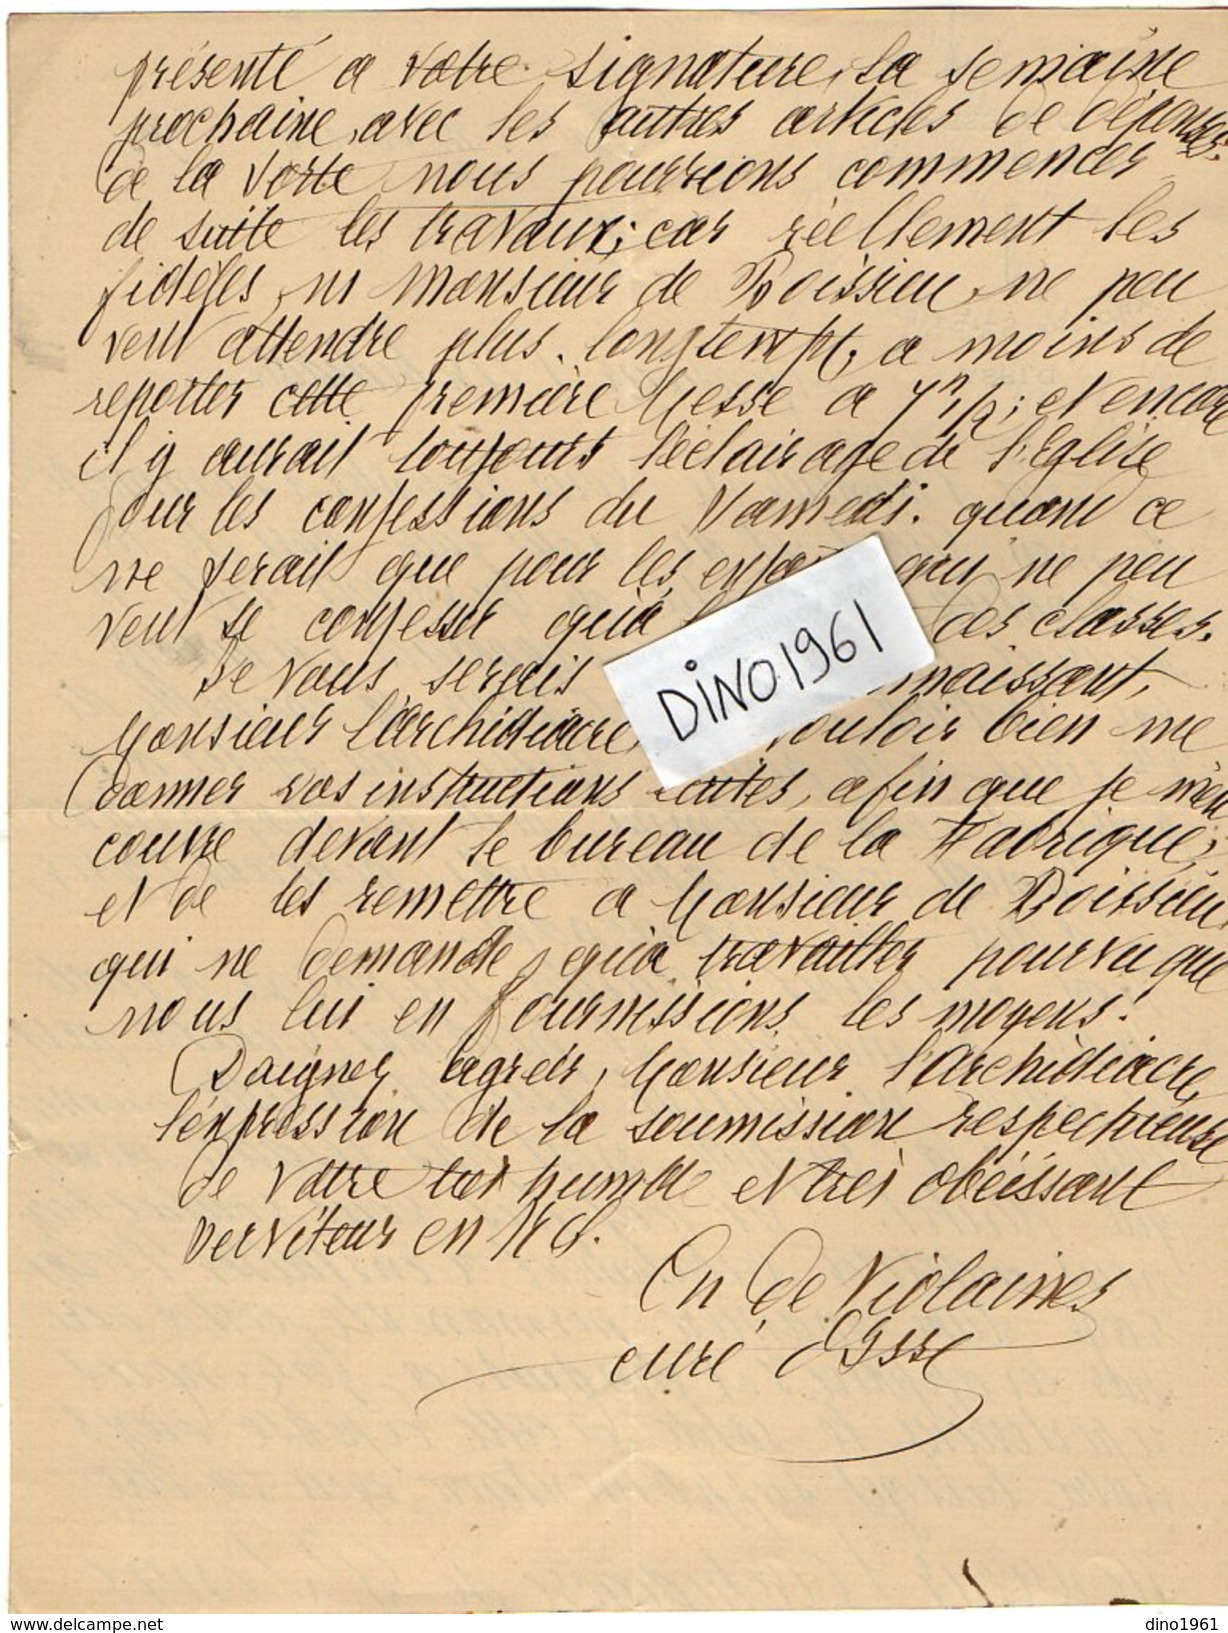 présenté a votre signature, la semaine
prochaine, avec les autres articles de dépenses.
de la sorte nous pourrions commencer
de suite les travaux; car réellement les
fidèles, ni Monsieur de Boissieu, ne peu
vent attendre plus longtemps, a moins de
reporter cette première Messe a 7h 1/2; et encore
il y aurait toujours l'éclairage de l'Eglise
pour les confessions du Samedi. quand ce
ne serait que pour les qui ne peu
vent se confesser qu'à des classes.
Je vous serais
Monsieur l'Archidiacre, vouloir bien me
donner vos instructions écrites, afin que je m'en
couvre devant le bureau de la Fabrique;
et de les remettre a Monsieur de Boissieu,
qui ne demande qu'a travailler pourvu que
nous lui en fournissions les moyens.
Daignez agréer, Monsieur l'Archidiacre,
l'expression de la soumission respectueuse
de votre très humble et très obéissant
serviteur en N.S.
de Violaines
curé d'Isse
DINO1961
delcampe.net
dino1961